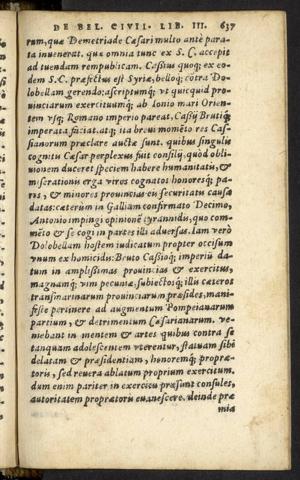 DE BEL. CIVII. LIB. III. 637
rum, quæ Demetriade Cæsari multo ante para-
ta inuenerat. quæ omnia tunc ex S. C. accepit
ad tuendam rempublicam. Caßius quoq; ex eo-
dem S.C. præfectus est Syriæ, belloq; cõtra Do-
lobellam gerendo; ascriptumq; vt quicquid pro-
uinciarum exercituumq; ab Ionio mari Orien-
tem vsq; Romano imperio pareat, Caßij Brutiq;
imperata faciat. atq; ita breui momẽto res Cas-
sianorum præclare auctæ sunt. quibus singulis
cognitis Cæsar perplexus fuit consilij, quòd obli-
uionem duceret speciem habere humanitatis, &
miserationis erga viros cognatos honoresq; pa-
res, & minores prouincias eis securitatis causa
datas: cæterùm in Galliam confirmato Decimo,
Antonio impingi opinionẽ tyrannidis, quo com-
mẽto & se cogi in partes illi aduersas. Iam verò
Dolobellam hostem iudicatum propter occisum
vnum ex homicidis: Bruto Caßioq; imperia da-
tum in amplißimas prouincias & exercitus,
magnamq; vim pecuniæ, subiectosq; illis cæteros
transmarinarum prouinciarum præsides, mani-
festè perinere ad augmentum Pompeianarum
partium, & detrimentum Cæsarianarum. ve-
niebant in mentem & artes quibus contra se
tanquam adolescentem vterentur, statuam sibi
delatam & præsidentiam, honoremq; propræ-
toris, sed reuera ablatum proprium exercitum.
dum enim pariter in exercitu præsunt consules,
autoritatem proprætoris euanescere. deinde præ
mia